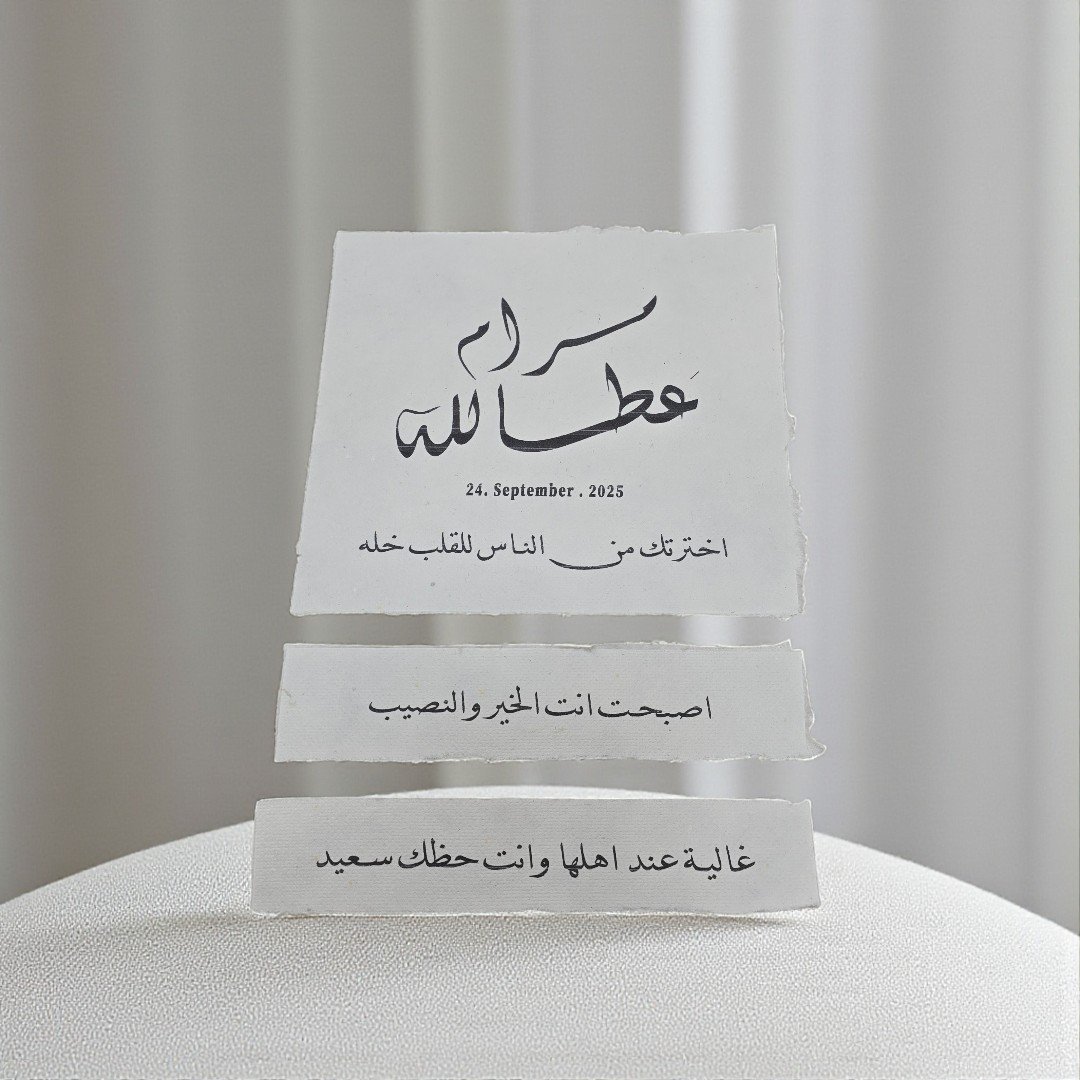 مرام
عطالله
24. September . 2025
اخترتك من الناس للقلب خله
اصبحت انت الخير والنصيب
غالية عند اهلها وانت حظك سعيد